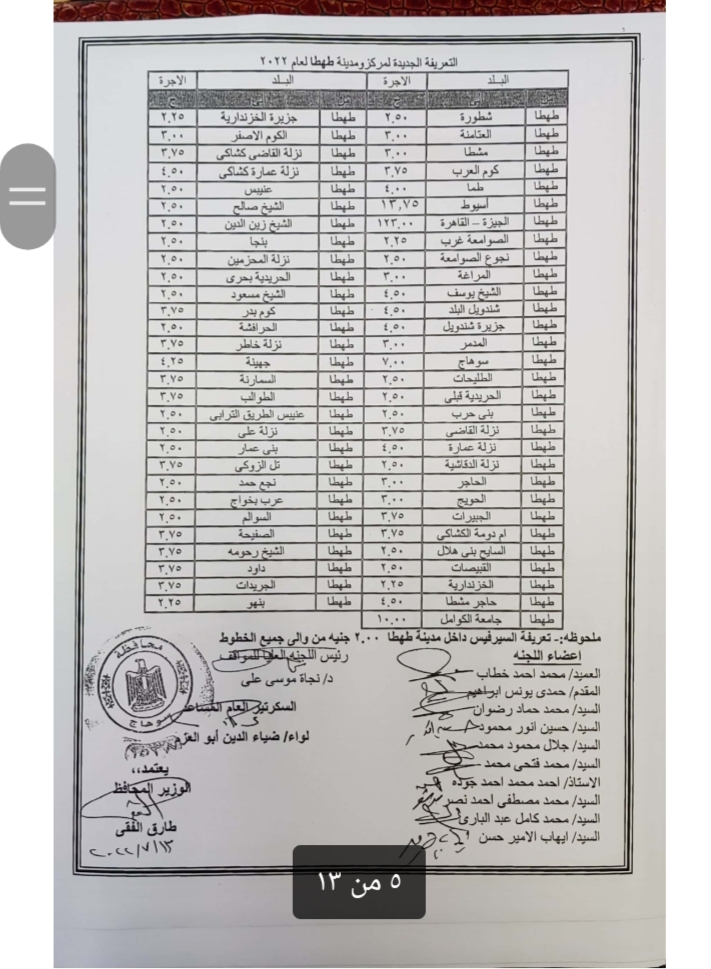 التعريفة الجديدة لمركز ومدينة طهطا لعام ٢٠٢٢
البلد الاجرة البلد الاجرة
من إلى ج من إلى ج
طهطا شطورة ٢,٥٠ طهطا جزيرة الخزندارية ٢,٢٥
طهطا العتامنة ٣,٠٠ طهطا الكوم الاصفر ٣,٠٠
طهطا مشطا ٣,٠٠ طهطا نزلة القاضى كشاكى ٣,٧٥
طهطا كوم العرب ٣,٧٥ طهطا نزلة عمارة كشاكى ٤,٥٠
طهطا طما ٤,٠٠ طهطا عنيبس ٢,٥٠
طهطا أسيوط ١٣,٧٥ طهطا الشيخ صالح ٢,٥٠
طهطا الجيزة – القاهرة ١٢٣,٠٠ طهطا الشيخ زين الدين ٢,٥٠
طهطا الصوامعة غرب ٢,٢٥ طهطا بنجا ٢,٥٠
طهطا نجوع الصوامعة ٢,٥٠ طهطا نزلة المحزمين ٢,٥٠
طهطا المراغة ٣,٠٠ طهطا الحريدية بحرى ٢,٥٠
طهطا الشيخ يوسف ٤,٥٠ طهطا الشيخ مسعود ٢,٥٠
طهطا شندويل البلد ٤,٥٠ طهطا كوم بدر ٣,٧٥
طهطا جزيرة شندويل ٤,٥٠ طهطا الحرافشة ٢,٥٠
طهطا المدمر ٣,٠٠ طهطا نزلة خاطر ٣,٧٥
طهطا سوهاج ٧,٠٠ طهطا جهينة ٤,٢٥
طهطا الطليحات ٢,٥٠ طهطا السمارنة ٣,٧٥
طهطا الحريدية قبلى ٢,٥٠ طهطا الطوالب ٣,٧٥
طهطا بنى حرب ٢,٥٠ طهطا عنيبس الطريق الترابى ٢,٥٠
طهطا نزلة القاضى ٣,٧٥ طهطا نزلة على ٢,٥٠
طهطا نزلة عمارة ٤,٥٠ طهطا بنى عمار ٢,٥٠
طهطا نزلة الدقاشية ٢,٥٠ طهطا تل الزوكى ٣,٧٥
طهطا الحاجر ٣,٠٠ طهطا نجع حمد ٢,٥٠
طهطا الحويج ٣,٠٠ طهطا عرب بخواج ٢,٥٠
طهطا الجبيرات ٣,٧٥ طهطا السوالم ٢,٥٠
طهطا ام دومة الكشاكى ٣,٧٥ طهطا الصفيحة ٣,٧٥
طهطا السايح بنى هلال ٢,٥٠ طهطا الشيخ رحومه ٣,٧٥
طهطا القبيصات ٢,٥٠ طهطا داود ٣,٧٥
طهطا الخزندارية ٢,٢٥ طهطا الجريدات ٣,٧٥
طهطا حاجر مشطا ٤,٥٠ طهطا بنهو ٢,٢٥
طهطا جامعة الكوامل ١٠,٠٠
ملحوظه:- تعريفة السيرفيس داخل مدينة طهطا ٢,٠٠ جنيه من والى جميع الخطوط
أعضاء اللجنه
العميد/ محمد احمد خطاب
المقدم/ حمدى يونس ابراهيم
السيد/ محمد حماد رضوان
السيد/ حسين انور محمود
السيد/ جلال محمود محمد
السيد/ محمد فتحى محمد
الاستاذ/ احمد محمد احمد جوده
السيد/ محمد مصطفى احمد نصر
السيد/ محمد كامل عبد البارى
السيد/ ايهاب الامير حسن
رئيس اللجنه العليا للمواقف
د/ نجاة موسى على
السكرتير العام المساعد
لواء/ ضياء الدين أبو العزم
يعتمد،،
الوزير المحافظ
طارق الفقى
٢٠٢٢/٧/١٣
محافظة
سوهاج
٥ من ١٣